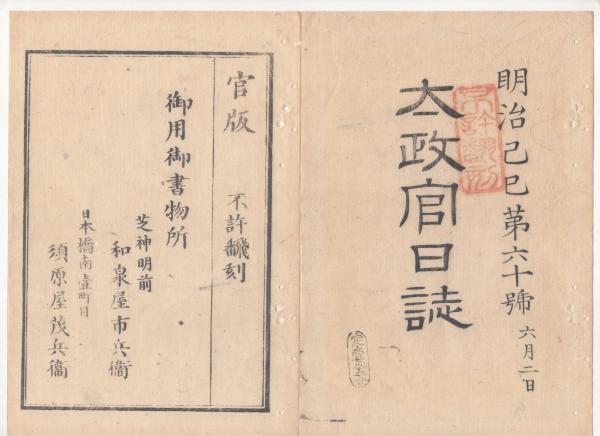 明治己巳第六十號 六月二日
太政官日誌
不許翻刻
官版 不許飜刻
御用御書物所
芝神明前
和泉屋市兵衞
日本橋南壹町目
須原屋茂兵衞